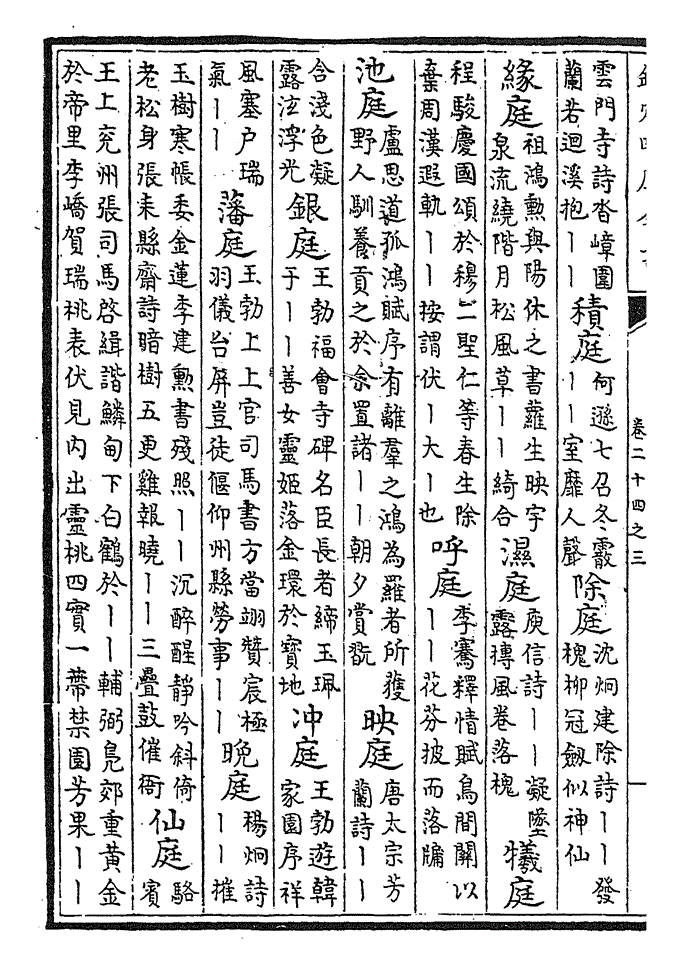 卷二十四之三
雲門寺詩沓嶂圍蘭若迴溪抱丨丨 積庭 何遜七召冬霰丨丨室靡人聲 除庭 沈炯建除詩丨丨發槐柳冠劔似神仙
緣庭 祖鴻勲與陽休之書蘿生映宇泉流繞階月松風草丨丨綺合 濕庭 庾信詩丨丨凝墜露搏風卷落槐 犧庭
程駿慶國頌於穆二聖仁等春生除棄周漢遐軌丨丨按謂伏丨大丨也 呼庭 李騫釋情賦鳥間關以丨丨花芬披而落牖
池庭 盧思道孤鴻賦序有離羣之鴻為羅者所獲野人馴養貢之於余置諸丨丨朝夕賞翫 映庭 唐太宗芳蘭詩丨丨
含淺色凝露泫浮光 銀庭 王勃福會寺碑名臣長者締玉珮于丨丨善女靈姬落金環於寳地 冲庭 王勃遊韓家園序祥
風塞户瑞氣丨丨 藩庭 王勃上上官司馬書方當翊贊宸極羽儀台屏豈徒偃仰州縣勞事丨丨 晚庭 楊炯詩丨丨摧
玉樹寒帳委金蓮李建勲書殘照丨丨沉醉醒静吟斜倚老松身張耒縣齋詩暗樹五更雞報曉丨丨三疊鼓催衙 仙庭 駱賓
王上兖州張司馬啓緝諧鱗甸下白鶴於丨丨輔弼鳬郊重黄金於帝里李嶠賀瑞桃表伏見内出靈桃四實一蔕禁園芳果丨丨